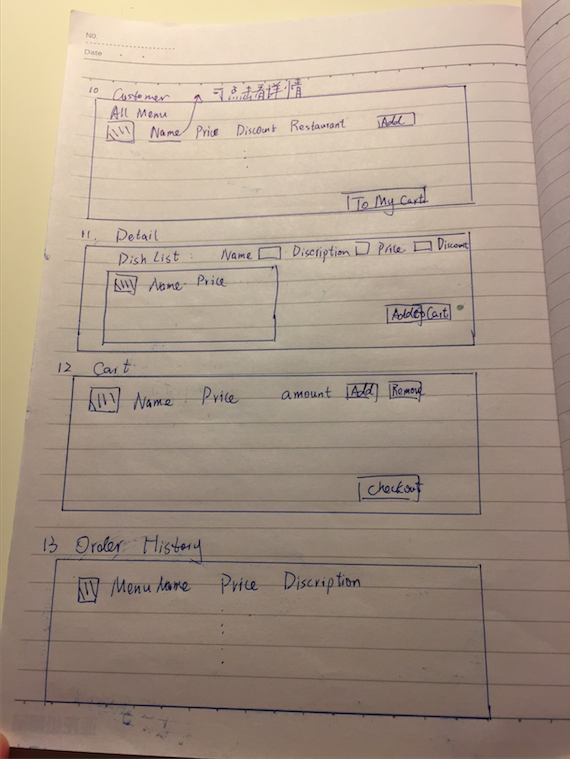 No.
Date
10 Customer 可点击看详情
All Menu
Name Price Discount Restaurant Add
To My Cart
11. Detail
Dish List : Name Discription Price Discount
Name Price
Add to Cart
12 Cart
Name Price amount Add Remove
Checkout
13 Order History
Menu Name Price Discription